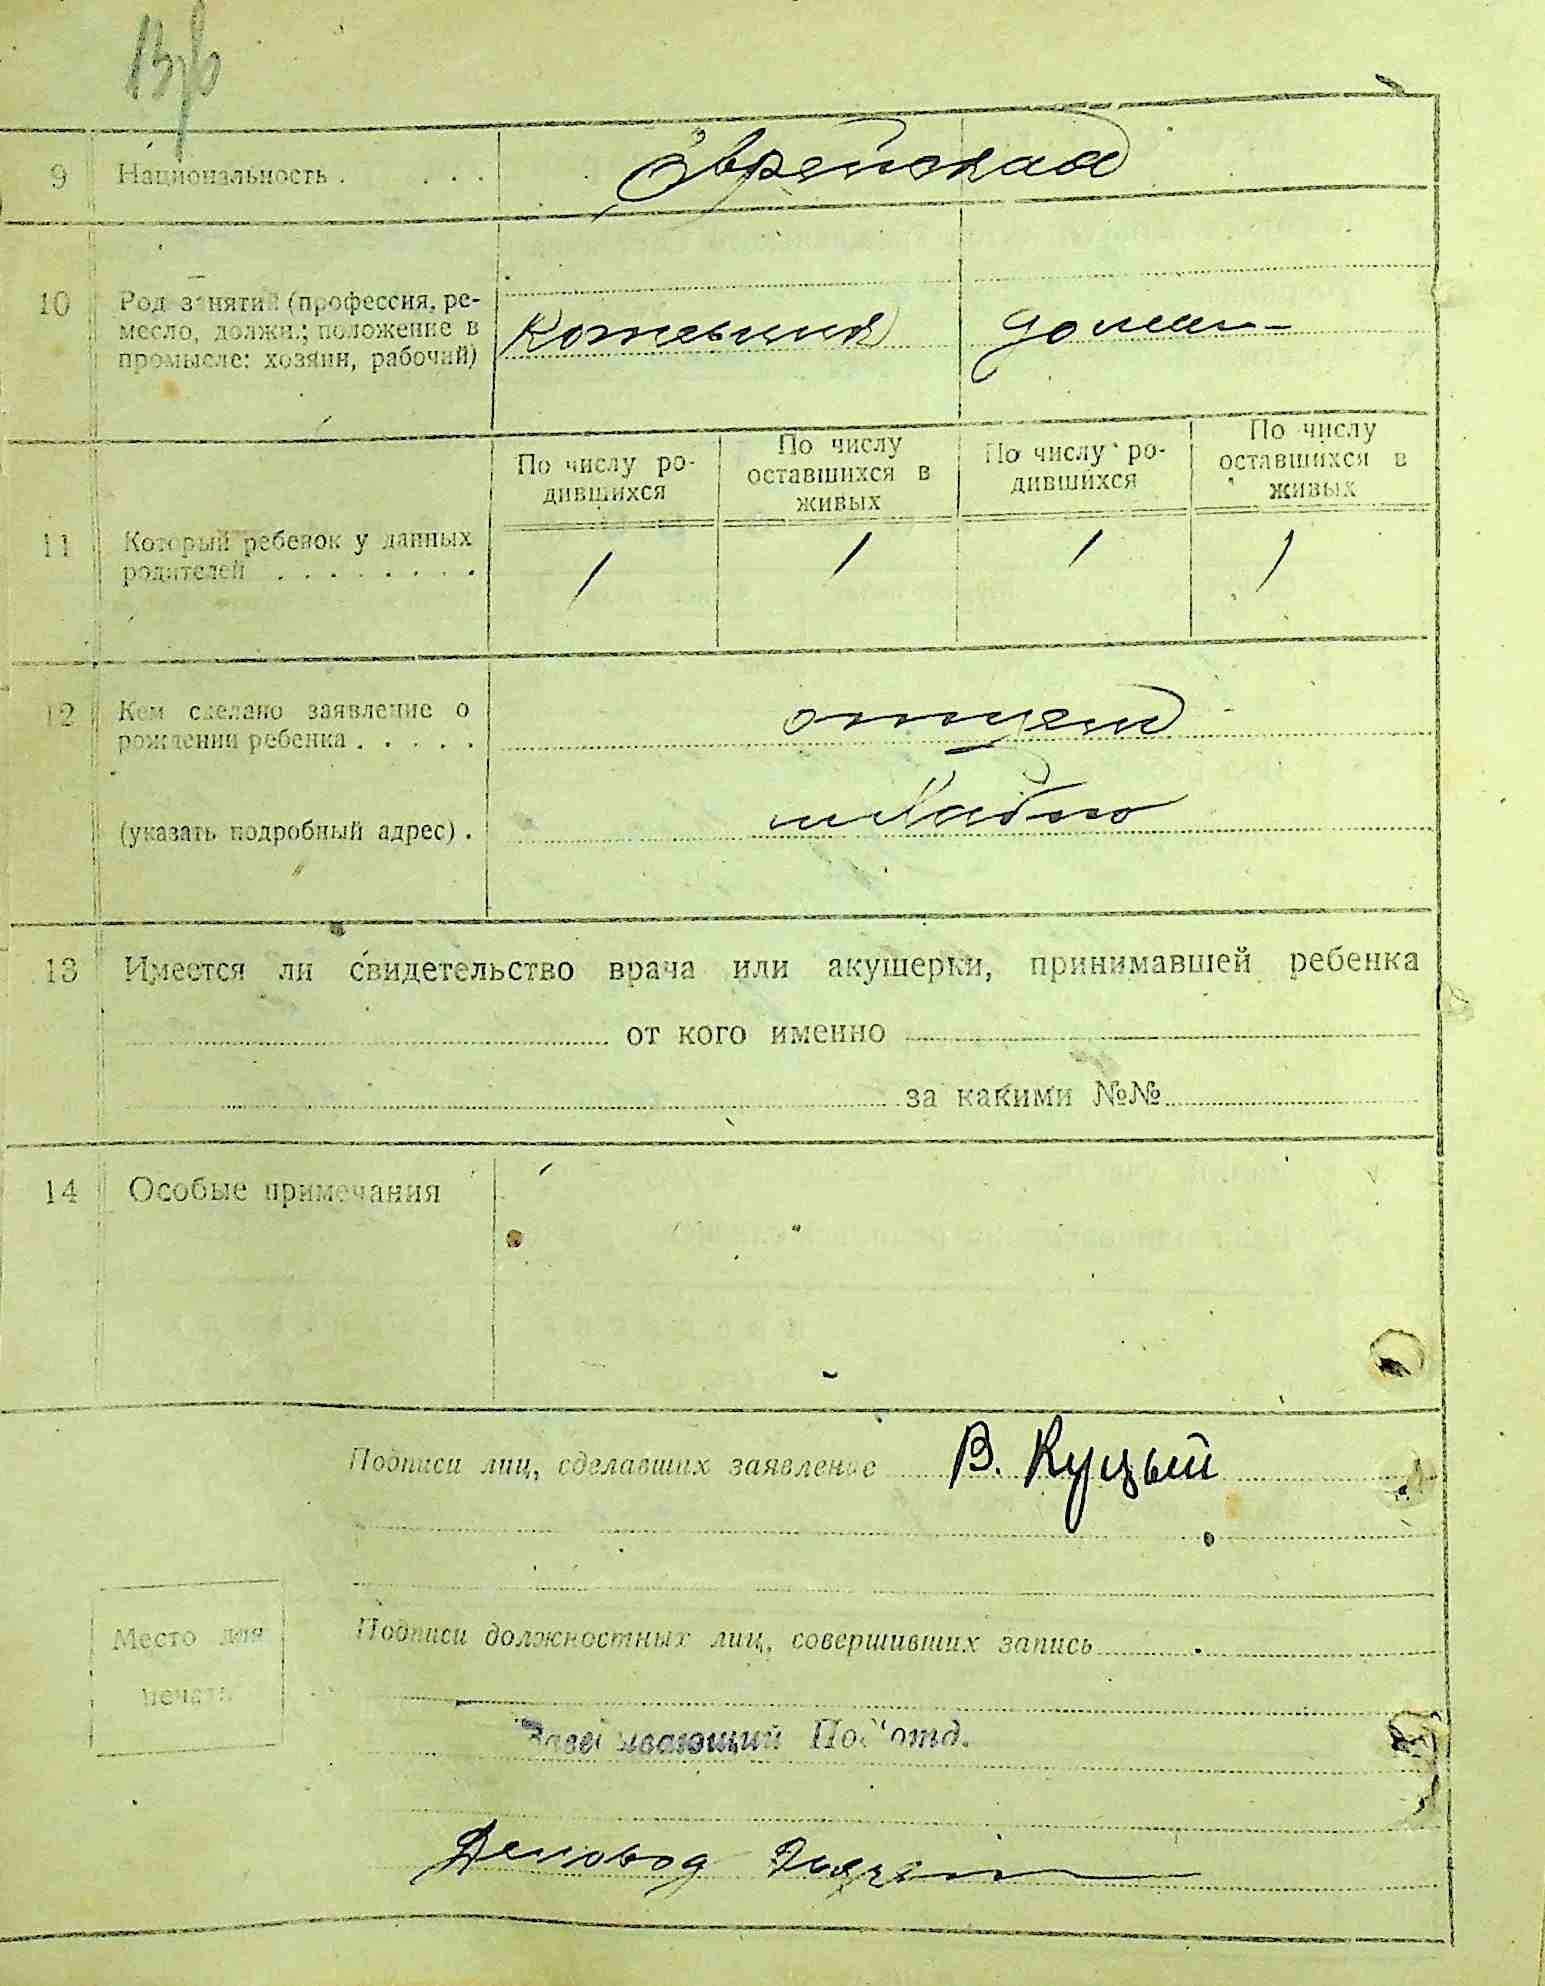 9 Национальность . . . . Еврейская
10 Род занятий (профессия, ре-
месло, должн.; положение в
промысле: хозяин, рабочий)
Кожевник домаш-
По числу ро-
дившихся
По числу
оставшихся в
живых
По числу ро-
дившихся
По числу
оставшихся в
живых
11 Который ребенок у данных
родителей . . . . . . . .
1 1 1 1
12 Кем сделано заявление о
рождении ребенка . . . . . отцем
(указать подробный адрес) .
13 Имеется ли свидетельство врача или акушерки, принимавшей ребенка
от кого именно
за какими №№
14 Особые примечания
Подписи лиц, сделавших заявление В. Куцый
Место для
печати
Подписи должностных лиц, совершивших запись
Заведывающий Под'отд.
Деловод